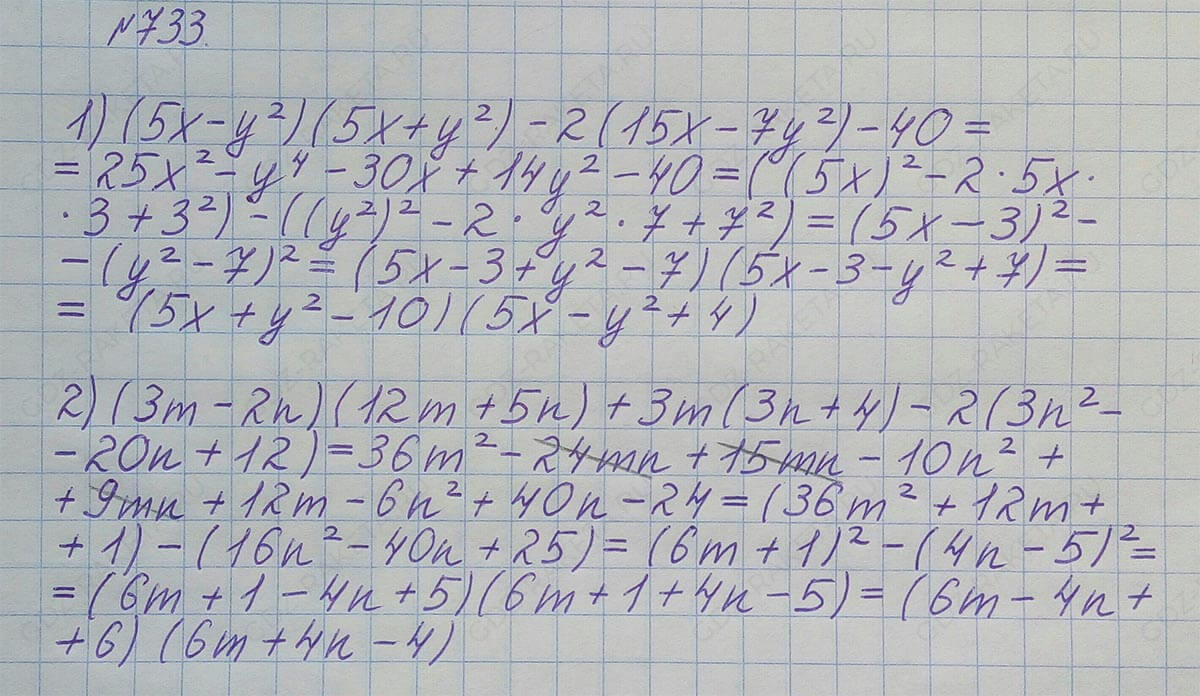 №733.
1) (5x-y²)(5x+y²)-2(15x-7y²)-40=
=25x²-y⁴-30x+14y²-40=((5x)²-2·5x·
·3+3²)-((y²)²-2·y²·7+7²)=(5x-3)²-
-(y²-7)²=(5x-3+y²-7)(5x-3-y²+7)=
= (5x+y²-10)(5x-y²+4)
2) (3m-2n)(12m+5n)+3m(3n+4)-2(3n²-
-20n+12)=36m²-24mn+15mn-10n²+
+9mn+12m-6n²+40n-24=(36m²+12m+
+1)-(16n²-40n+25)=(6m+1)²-(4n-5)²=
=(6m+1-4n+5)(6m+1+4n-5)=(6m-4n+
+6)(6m+4n-4)
GDZ-RAKETA.RU